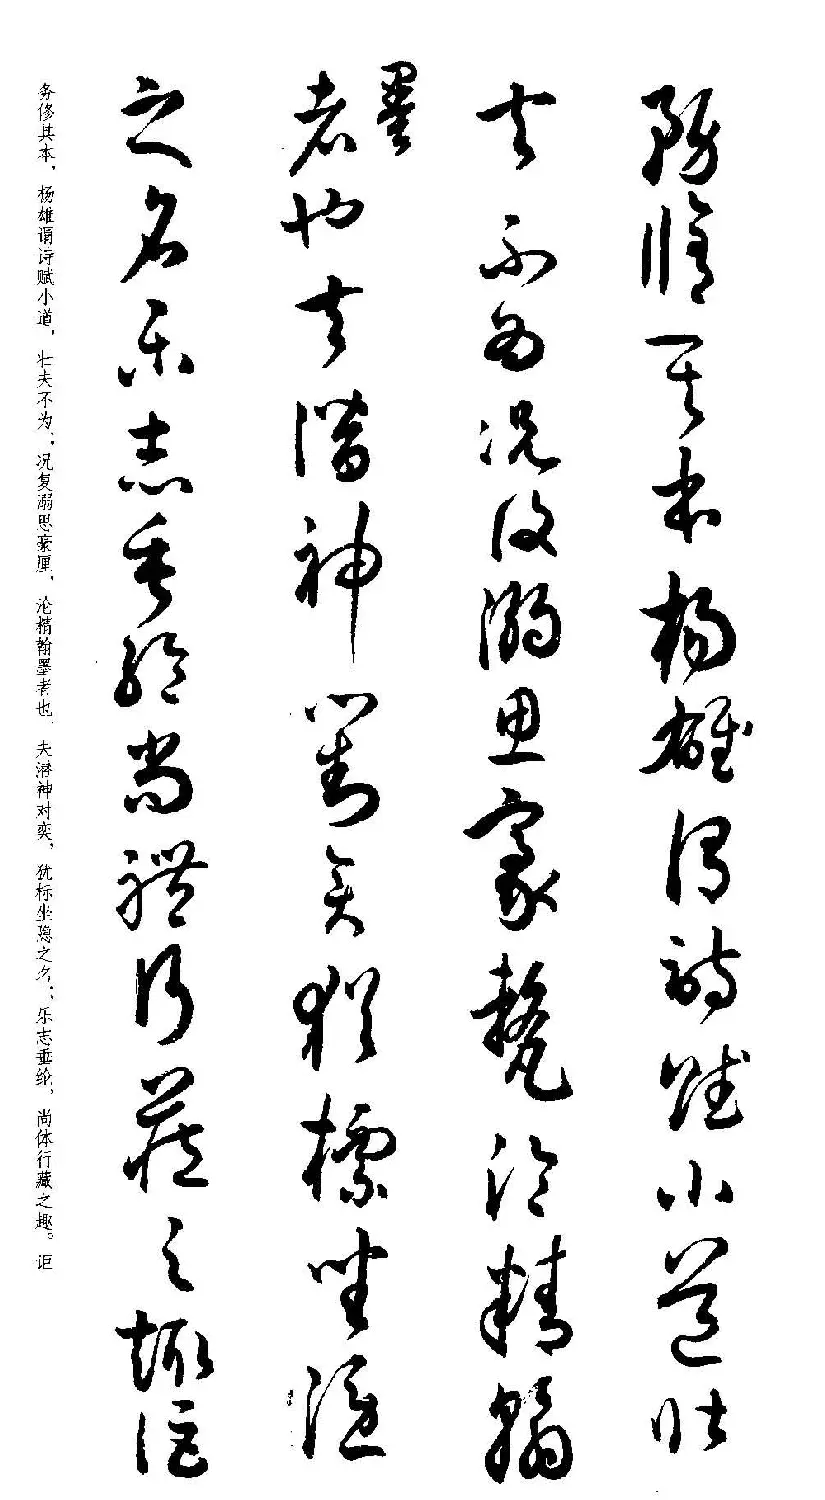 務脩其本楊雄謂詩賦小道壯
夫不為況復溺思豪氂淪精翰
墨
者也夫潛神對奕猶標坐隱
之名樂志垂綸尚體行藏之趣詎
务修其本，杨雄谓诗赋小道，壮夫不为；况复溺思豪厘，沦精翰墨者也 夫潜神对奕，犹标坐隐之名；乐志垂纶，尚体行藏之趣。讵